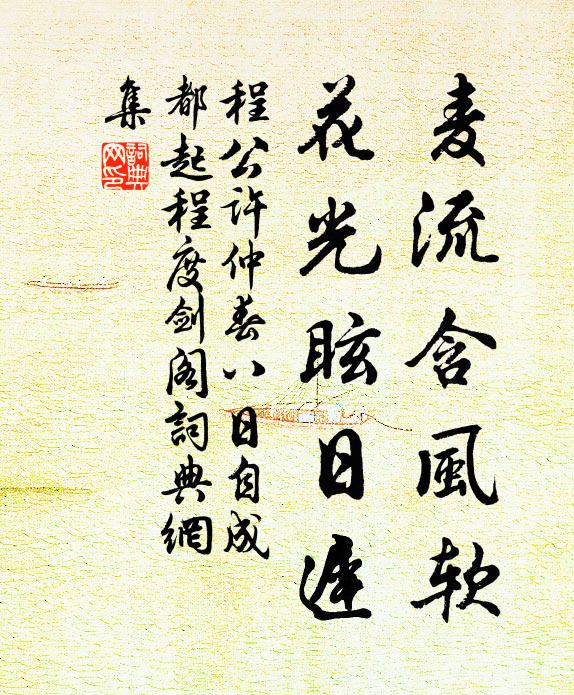 麦流含風軟
花光眩日遲
程公許仲春八日自成
都起程度劍阁詞典網
集
詞典网印